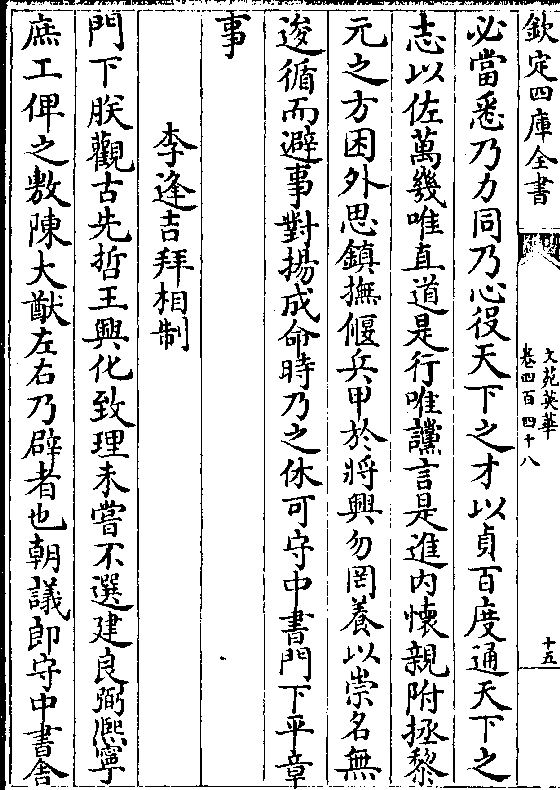 欽定四庫全書
文苑英華
卷四百四十八
十五
必當悉乃力同乃心役天下之才以貞百度通天下之
志以佐萬幾唯直道是行唯讜言是進内懷親附拯黎
元之方困外思鎮撫偃兵甲於將興勿罔養以崇名無
逡循而避事對揚成命時乃之休可守中書門下平章
事
李逢吉拜相制
門下朕觀古先哲王興化致理未嘗不選建良弼熈寧
庶工俾之敷陳大猷左右乃辟者也朝議郎守中書舍